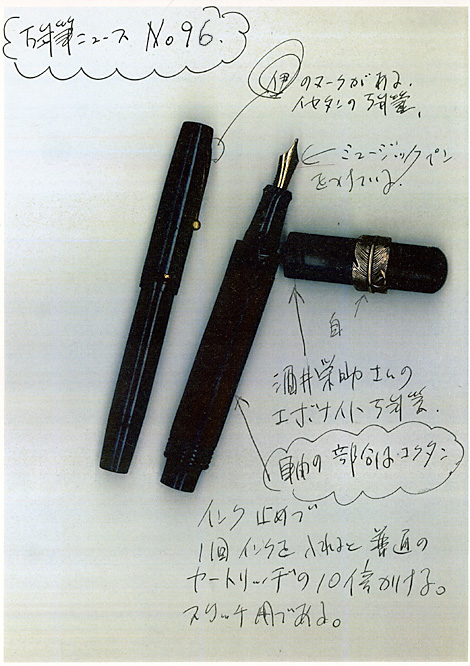 万年筆ニュース No 96.
伊のマークがある。
イセタンの万年筆。
ミュージックペン
をつけている。
酒井栄助さんの
エボナイト万年筆.
軸の部分はコクタン
インク止めで
1回インクを入れると普通の
カートリッヂの10倍かける。
スケッチ用である。